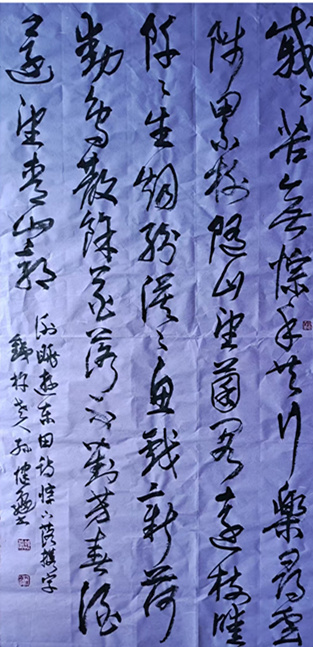 戚々苦無悰手共行樂尋雲
陟累榭隨山望菌閣遠樹曖
阡々生烟紛漠々魚戲新荷
動鳥散餘花落不對芳春酒
還望青山郭
謝朓遊东田詩悰下落携字